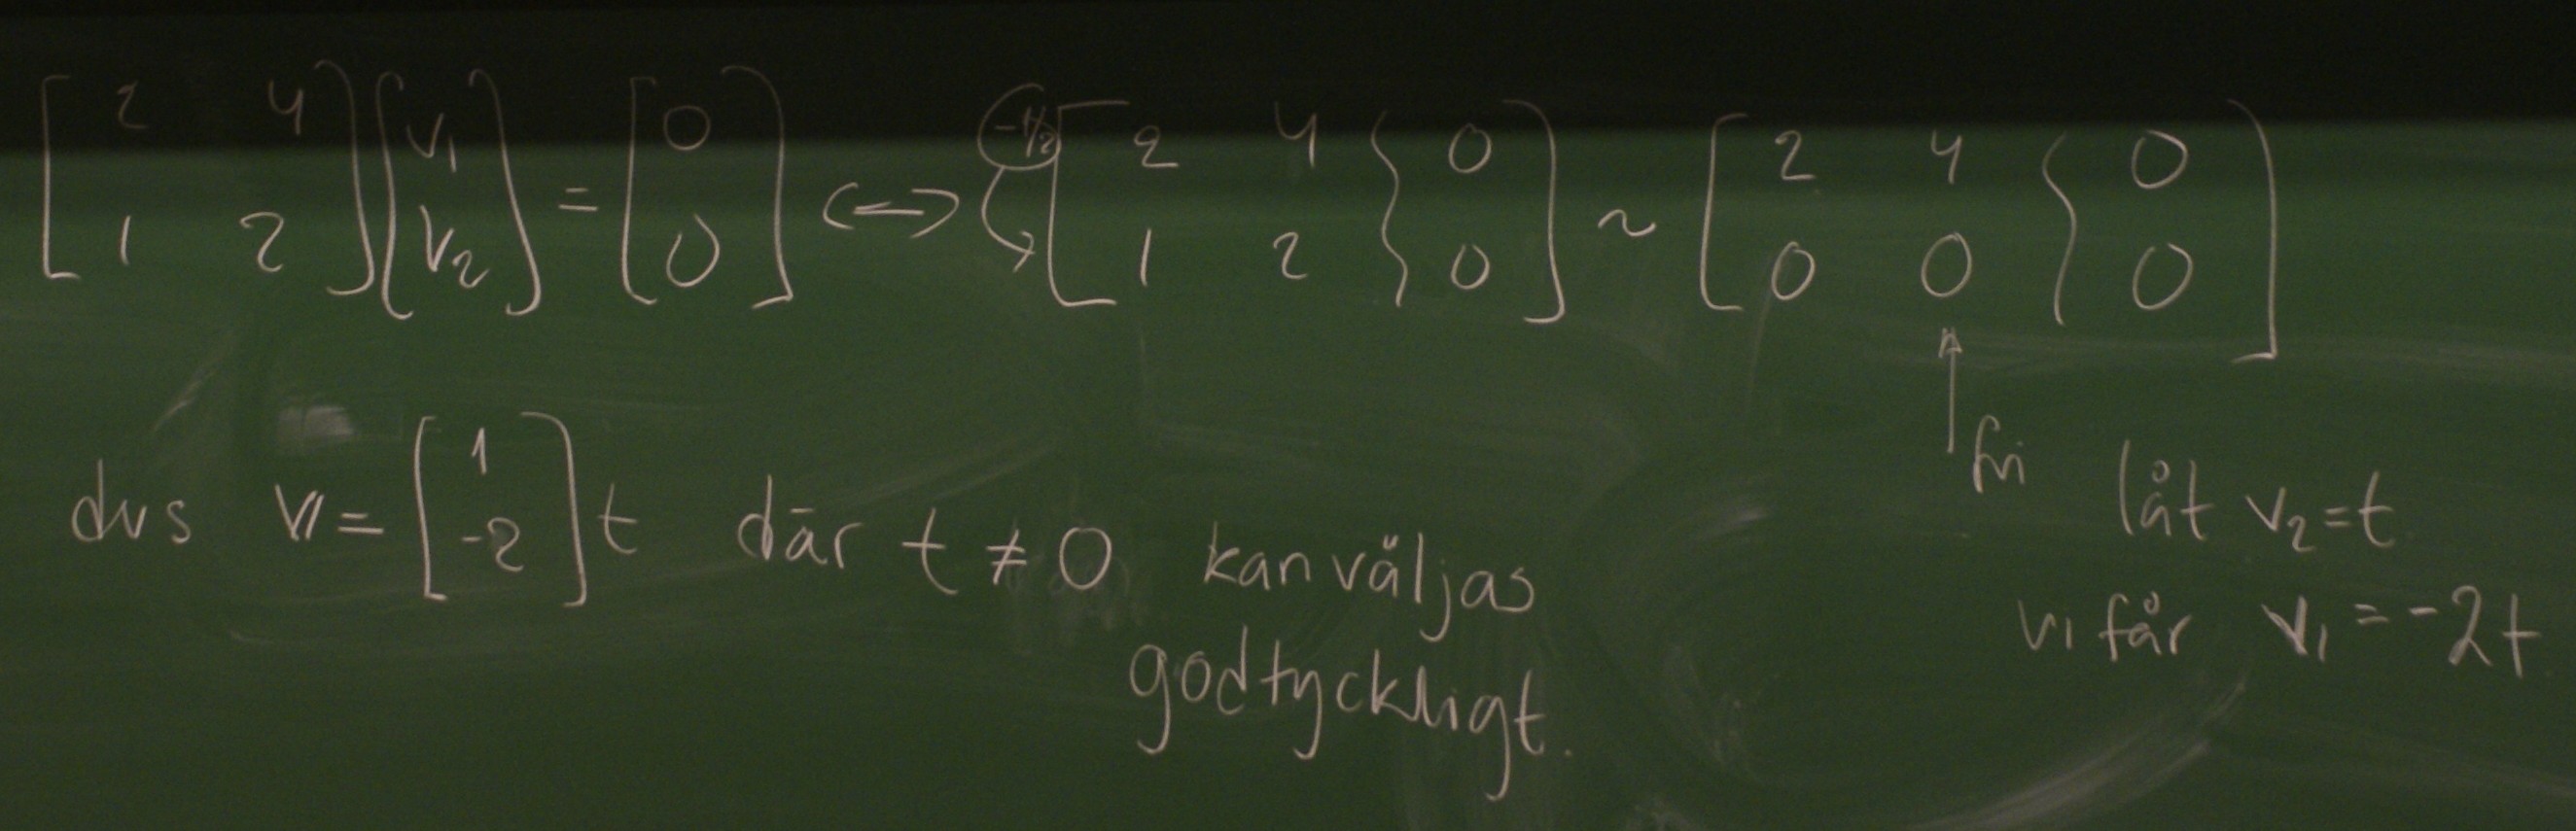 [2 4; 1 2] [v₁; v₂] = [0; 0] <=> -1/2 [2 4 | 0; 1 2 | 0] ~ [2 4 | 0; 0 0 | 0]
fri låt v₂=t
vi får v₁ = -2t
dvs v = [1; -2] t där t ≠ 0 kan väljas
godtyckligt.